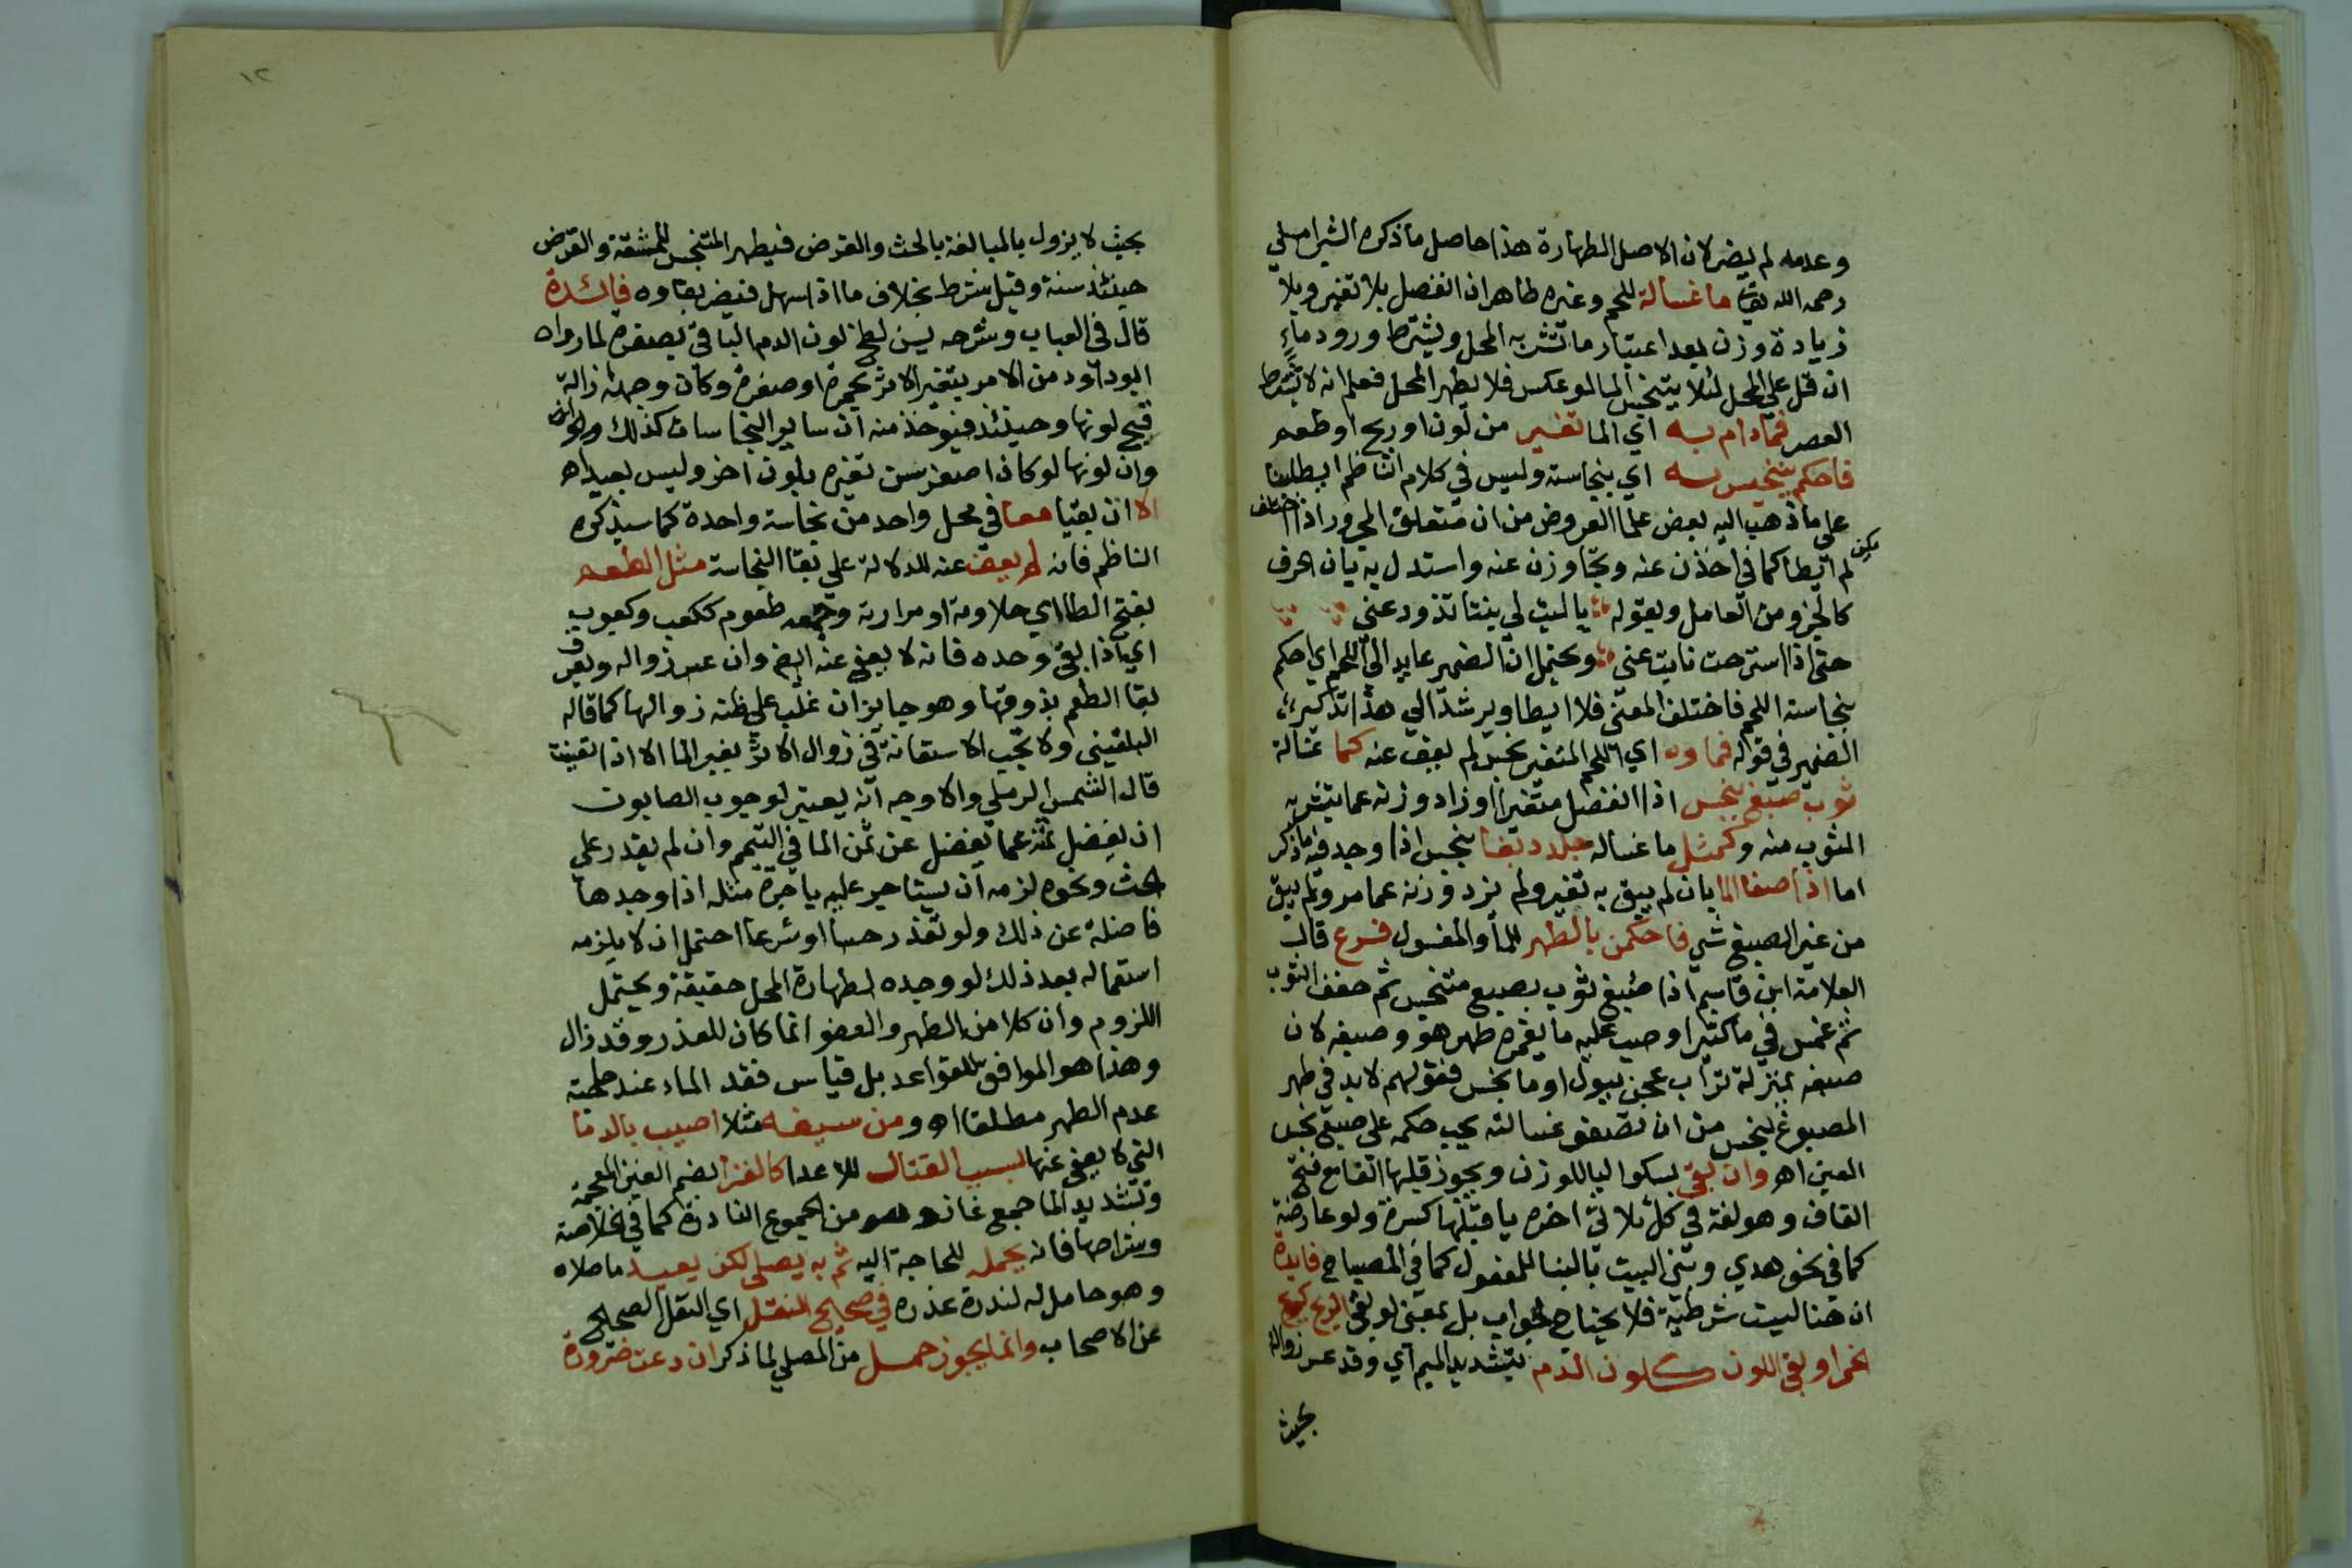 وعدمه لم يضر لان الاصل الطهارة هذا حاصل ما ذكره الشبراملسي
رحمه الله ما غسالة للحم وغيره طاهر ان انفصل بلا تغير وبلا
زيادة وزن بعد اعتبار ما تشربه المحل ويشترط ورود ماءٍ
ان قل على المحل لئلا يتنجس الما لو عكس فلا يطهر المحل فعلم انه لا يشترط
العصر فما دام به اي الما تغير من لون او ريح او طعم
فاحكم بتنجيسه اي بنجاسته وليس في كلام الناظم ايطا هنا
على ما ذهب اليه بعض علما العروض من ان متعلق المجرور اذا اختلف
لم يكن ايطا كما في اخذن عنه وتجاوزن عنه واستدل به بان الحرف
كالجزء من العامل وبقوله يا ليت لي بنتا تذود عني
حتى اذا استرحت نابت عني ويحتمل ان الضمير عايد الى اللحم اي احكم
بنجاسة اللحم فاختلف المعنى فلا ايطا ويرشد الى هذا تذكير
الضمير في قوله فماوه اي اللحم المتغير نجس لم يعف عنه كما غسالة
ثوب صبغ بنجس اذا انفصل متغيرا او زاد وزنه عما يتشربه
الثوب منه وكمثل ما غسالة جلد دبغا بنجس اذا وجد فيه ما ذكر
اما اذا صفا الما بان لم يبق به تغير ولم يزد وزنه عما مر ولم يبق
من غير الصبغ شي فاحكمن بالطهر للما والمغسول فرع قال
العلامة ابن قاسم اذا صبغ ثوب بصبغ متنجس ثم جفف الثوب
ثم غمس في ما كثير او صب عليه ما يغمره طهر هو وصبغه لان
صبغه بمنزلة تراب عجن ببول او ما نجس فقولهم لا بد في طهر
المصبوغ بنجس من ان تصفو غسالته يجب حكمه على صبغ نجس
العين اه وان بقي بسكون اليا للوزن ويجوز قلبها الفا مع فتح
القاف وهو لغة في كل ثلاثي اخره يا قبلها كسرة ولو عارضة
كما في نحو هدي وبني البيت بالبنا للمفعول كما في المصباح فايدة
ان هنا ليست شرطية فلا يحتاج لجواب بل بمعنى لو بقي الريح كريح
الخمر او بقي اللون كلون الدم بتشديد الميم اي وقد عسر زواله
بحيث
١٢
بحيث لا يزول بالمبالغة بالحث والقرض فيطهر المتنجس للمشقة والقرض
حينئذ سنة وقيل شرط بخلاف ما اذا سهل فيضر بقاوه فائدة
قال في العباب وشرحه يسن لطخ لون الدم الباقي بصفرة لما رواه
ابو داود من الامر بتغير الاثر بحمرة او صفرة وكان وجهه ازالة
قبح لونها وحينئذ فيوخذ منه ان ساير النجاسات كذلك
وان لونها لو كان اصفر سن تغيره بلون اخر وليس ببعيد اه
الا ان بقيا معا في محل واحد من نجاسة واحدة كما سيذكره
الناظم فانه لم يعف عنه للدلالة على بقا النجاسة مثل الطعم
بفتح الطا اي حلاوته او مرارته وجمعه طعوم ككعب وكعوب
اي اذا بقي وحده فانه لا يعفى عنه ايض وان عسر زواله ويعرف
بقا الطعم بذوقها وهو جايز ان غلب على ظنه زوالها كما قاله
البلقيني ولا تجب الاستعانة في زوال الاثر بغير الما الا اذا تعينت
قال الشمس الرملي والاوجه انه يعتبر لوجوب الصابون
ان يفضل ثمنه عما يفضل عن ثمن الما في التيمم وان لم يقدر على
الحث ونحوه لزمه ان يستاجر عليه باجرة مثله اذا وجدها
فاضلة عن ذلك ولو تعذر حسا او شرعا احتمل ان لا يلزمه
استعماله بعد ذلك لو وجده لطهارة المحل حقيقة ويحتمل
اللزوم وان كلا من الطهر والعفو انما كان للعذر وقد زال
وهذا هو الموافق للقواعد بل قياس فقد الماء عند حاجته
عدم الطهر مطلقا اه ومن سيفه مثلا اصيب بالدما
التي لا يعفى عنها بسبب القتال للاعدا كالغزا بضم الغين المعجمة
وتشديد الزا جمع غاز وهو من الجموع النادرة كما في الخلاصة
وشراحها فانه يحمله للحاجة اليه ثم به يصلي لكن يعيد ما صلاه
وهو حامل له لندرة عذره في صحيح النقل اي النقل الصحيح
عن الاصحاب وانما يجوز حمله من المصلي لما ذكر ان دعت ضرورة